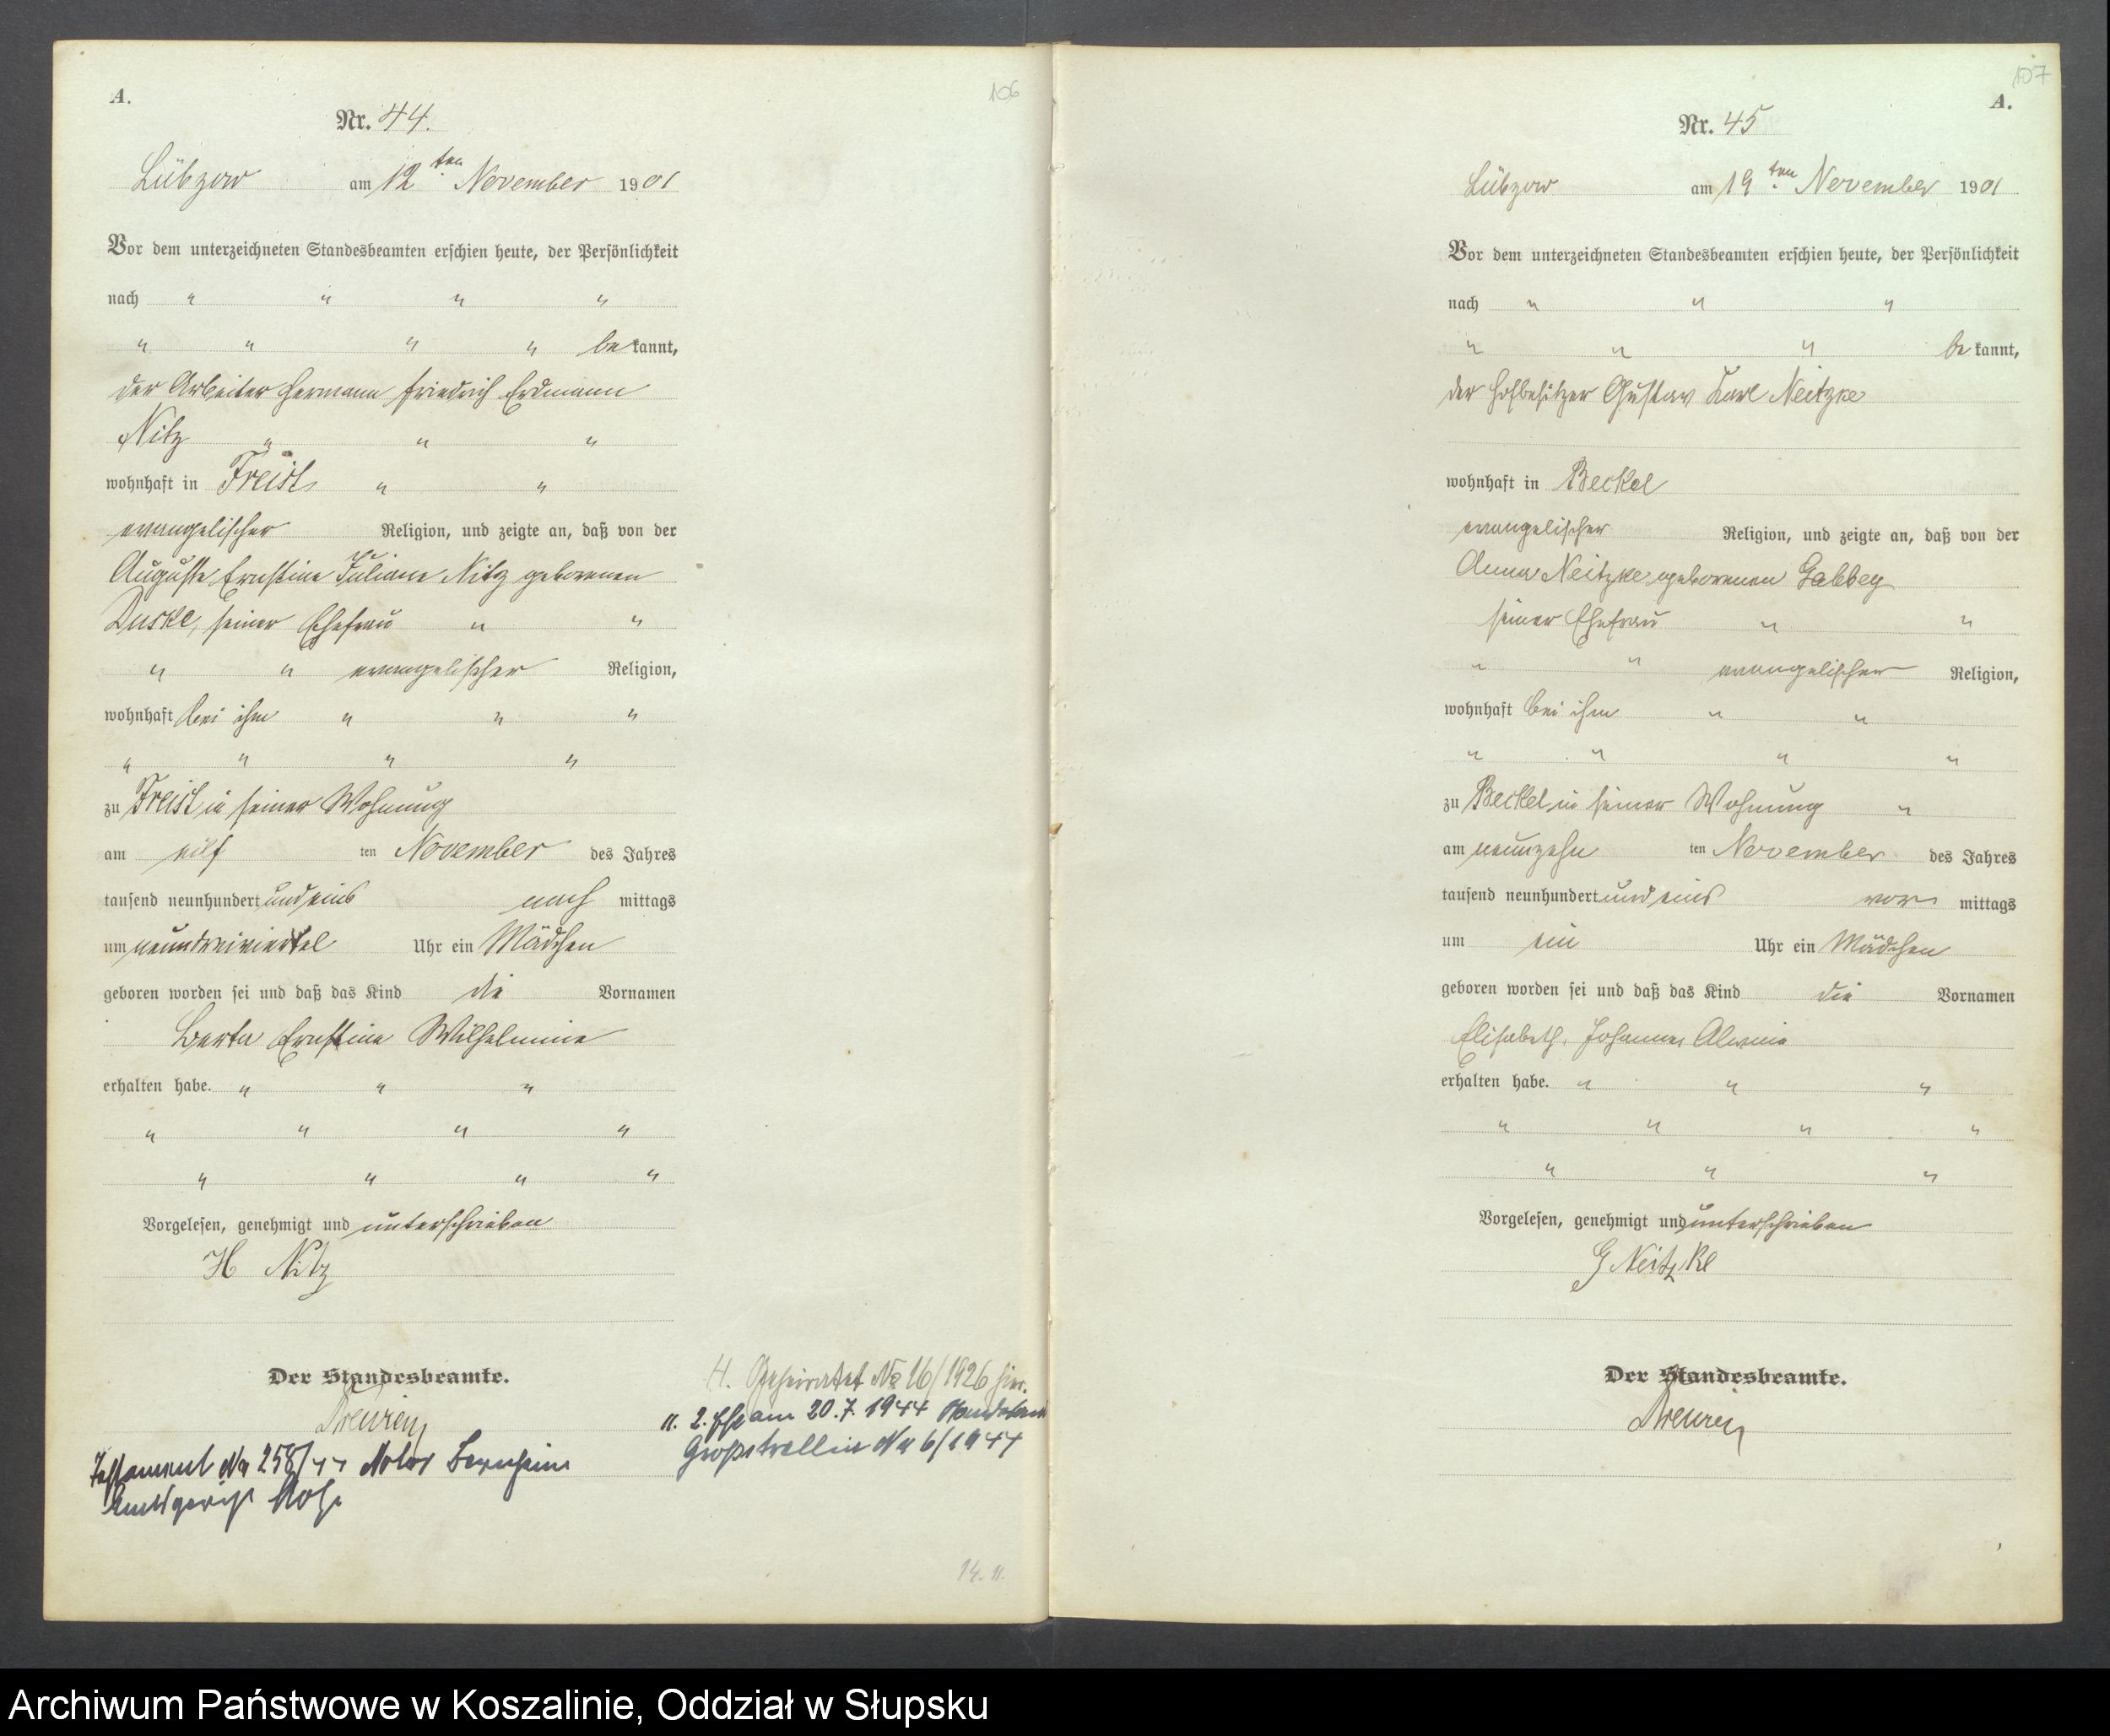 A.
106
Nr. 44.
Lübzow am 12ten November 1901
Vor dem unterzeichneten Standesbeamten erschien heute, der Persönlichkeit
nach " " " "
" " " " bekannt,
der Arbeiter Hermann Friedrich Erdmann
Nitz " " "
wohnhaft in Freist " "
evangelischer Religion, und zeigte an, daß von der
Auguste Ernstine Juliane Nitz geborenen
Duske, seiner Ehefrau " "
" " evangelischer Religion,
wohnhaft bei ihm " " "
" " " "
zu Freist in seiner Wohnung
am eilf ten November des Jahres
tausend neunhundert und eins nach mittags
um neundreiviertel Uhr ein Mädchen
geboren worden sei und daß das Kind die Vornamen
Berta Ernstine Wilhelmine
erhalten habe. " " "
" " " "
" " " "
Vorgelesen, genehmigt und unterschrieben
H Nitz
Der Standesbeamte.
Testament No 258/44 Notar
Amtsgericht
H. Geheiratet No 16/1926 hier.
II. 2. Ehe am 20.7.1944 Standesamt
Grossstrellin No 6/1944
14. 11.
107
A.
Nr. 45
Lübzow am 19ten November 1901
Vor dem unterzeichneten Standesbeamten erschien heute, der Persönlichkeit
nach " " "
" " " bekannt,
der Hofbesitzer Gustav Karl Neitzke
wohnhaft in Beckel
evangelischer Religion, und zeigte an, daß von der
Anna Neitzke geborenen Gabbey
seiner Ehefrau " "
" " evangelischer Religion,
wohnhaft bei ihm " "
" " " "
zu Beckel in seiner Wohnung "
am neunzehn ten November des Jahres
tausend neunhundert und eins vor mittags
um ein Uhr ein Mädchen
geboren worden sei und daß das Kind die Vornamen
Elisabeth, Johanna Alwine
erhalten habe. " " "
" " " "
" " "
Vorgelesen, genehmigt und unterschrieben
G Neitzke
Der Standesbeamte.
Archiwum Państwowe w Koszalinie, Oddział w Słupsku